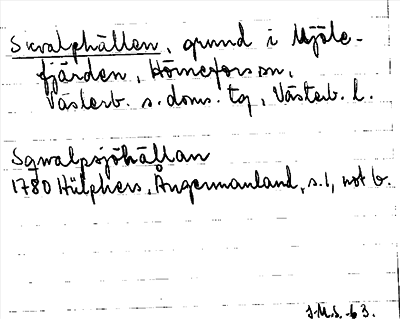 Skvalphällen, grund i Mjöle-
fjärden, Hörnefors sn,
Västerb. s. doms. tg, Västerb. l.
Sqvalpsjöhällan
1780 Hülphers, Ångermanland, s. 1, not b.
J.M.S. -63.